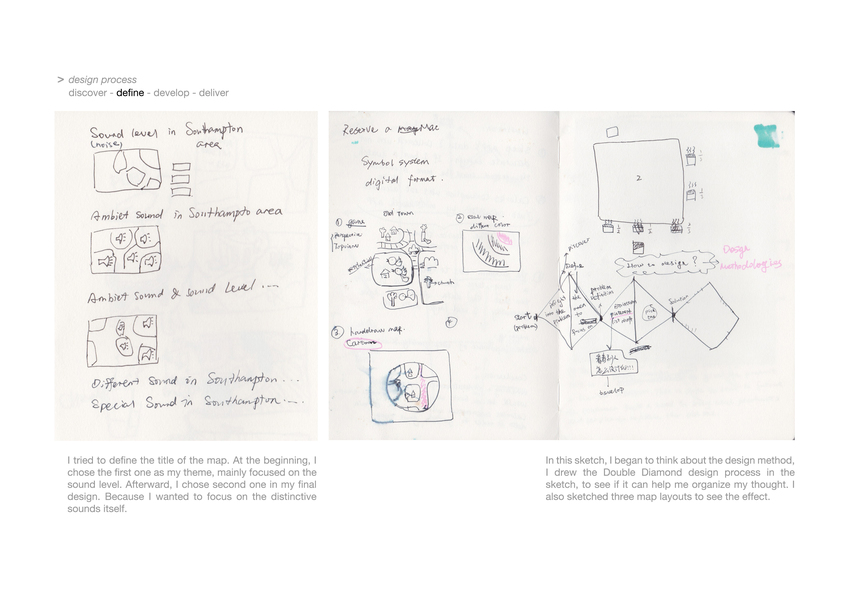 > design process
discover - define - develop - deliver
Sound level in Southampton
(noise) area
Ambiet Sound in Southampto area
Ambiet Sound & sound Level ....
Different Sound in Southampton ...
Special Sound in Southampton ....
Reserve a Mac
Symbol system
digital format.
Old town
① game
② Real map
differe color
③ handdraw map.
Cartoon
④
2
Discover
Define
How to design ?
Design
Methodologies
problem
definition
Start
(problem)
Solution
Develop
I tried to define the title of the map. At the beginning, I
chose the first one as my theme, mainly focused on the
sound level. Afterward, I chose second one in my final
design. Because I wanted to focus on the distinctive
sounds itself.
In this sketch, I began to think about the design method,
I drew the Double Diamond design process in the
sketch, to see if it can help me organize my thought. I
also sketched three map layouts to see the effect.